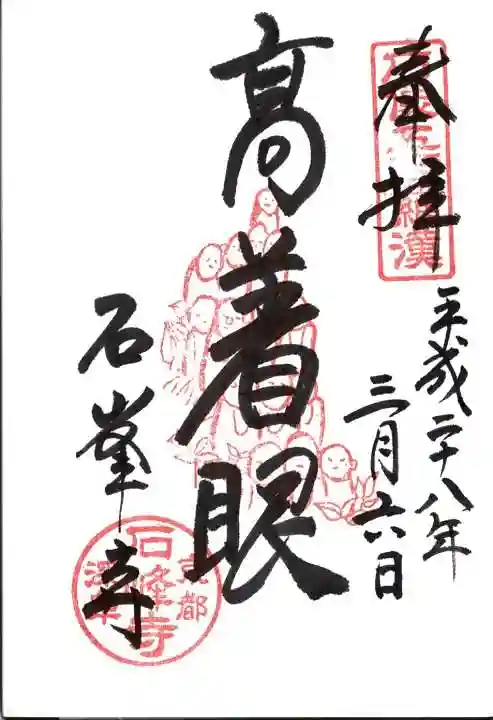 奉拝
平成二十八年
三月六日
高着眼
石峯寺
羅漢
京都
深草
石峰寺